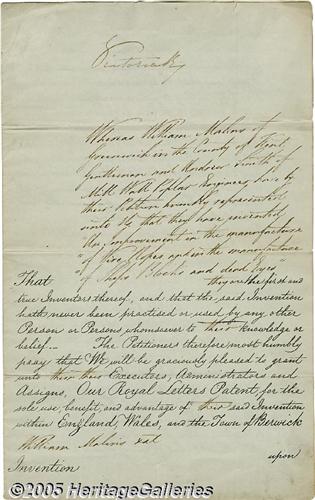 Victoria R
Whereas William Malins of
Greenwich in the County of Kent
Gentleman and Smith of
Mill Wall Poplar Engineers have by
their Petition humbly represented
unto Us that they have invented
"An Improvement in the manufacture
of Wire Ropes and in the manufacture
of Blocks and dead Eyes"
That they are the first and
true Inventors thereof, and that the said Invention
hath never been practised or used by any other
Person or Persons whomsoever to their knowledge or
belief... The Petitioners therefore most humbly
pray that We will be graciously pleased to grant
unto them their Executors, Administrators and
Assigns, Our Royal Letters Patent for the
sole use, benefit, and advantage of their said Invention
within England, Wales, and the Town of Berwick
William Malins
upon
Invention
©2005 HeritageGalleries